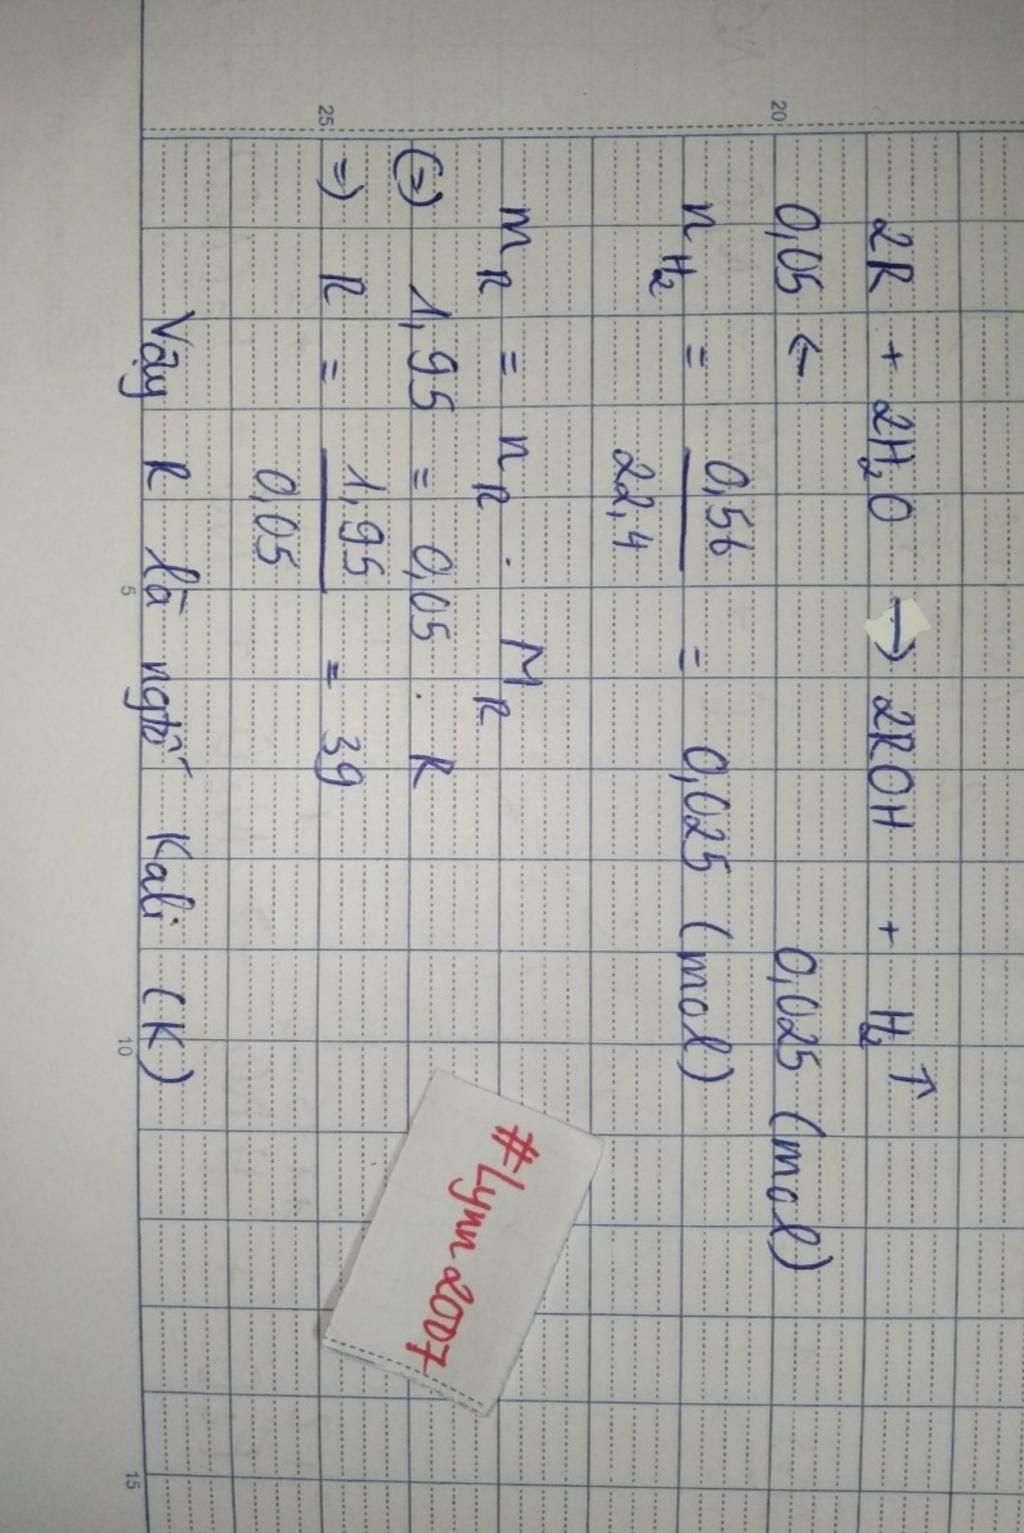 2R + 2H₂O → 2ROH + H₂↑
0,05 ← 0,025 (mol)
n_H₂ = 0,56 / 22,4 = 0,025 (mol)
m_R = n_R . M_R
(=) 1,95 = 0,05 . R
=) R = 1,95 / 0,05 = 39
Vậy R là ngtố Kali (K)
#Lynn2007
20
25
5
10
15